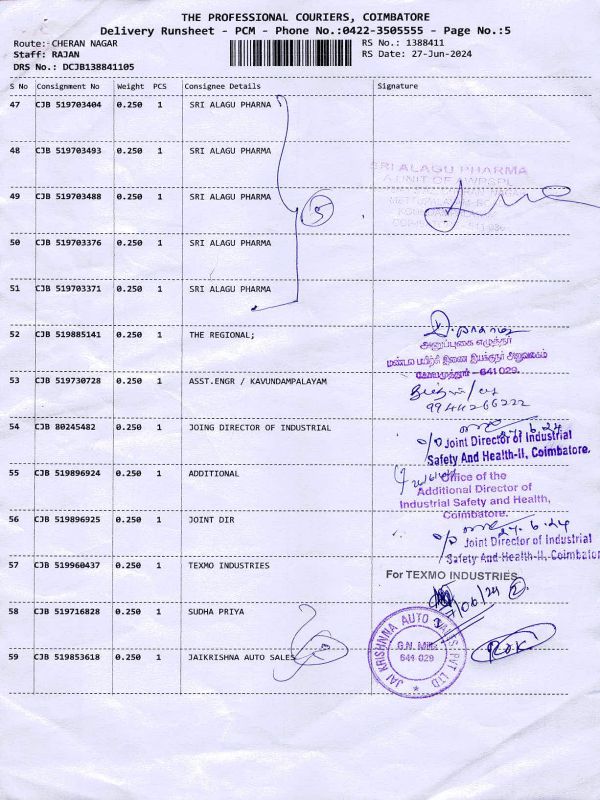 THE PROFESSIONAL COURIERS, COIMBATORE
Delivery Runsheet - PCM - Phone No.:0422-3505555 - Page No.:5
Route: CHERAN NAGAR RS No.: 1388411
Staff: RAJAN RS Date: 27-Jun-2024
DRS No.: DCJB138841105
S No Consignment No Weight PCS Consignee Details Signature
47 CJB 519703404 0.250 1 SRI ALAGU PHARNA
48 CJB 519703493 0.250 1 SRI ALAGU PHARMA
SRI ALAGU PHARMA
A UNIT OF AWPSPL
49 CJB 519703488 0.250 1 SRI ALAGU PHARMA
5
50 CJB 519703376 0.250 1 SRI ALAGU PHARMA
51 CJB 519703371 0.250 1 SRI ALAGU PHARMA
52 CJB 519885141 0.250 1 THE REGIONAL;
மண்டல பயிற்சி இணை இயக்குநர் அலுவலகம்
கோயமுத்தூர் - 641 029.
53 CJB 519730728 0.250 1 ASST.ENGR / KAVUNDAMPALAYAM
9944266222
54 CJB 80245482 0.250 1 JOING DIRECTOR OF INDUSTRIAL
27.6.24
Joint Director of Industrial
Safety And Health-II, Coimbatore.
55 CJB 519896924 0.250 1 ADDITIONAL
Office of the
Additional Director of
Industrial Safety and Health,
Coimbatore.
56 CJB 519896925 0.250 1 JOINT DIR
27.6.24
Joint Director of Industrial
Safety And Health-II, Coimbator
57 CJB 519960437 0.250 1 TEXMO INDUSTRIES
For TEXMO INDUSTRIES
2
58 CJB 519716828 0.250 1 SUDHA PRIYA
JAI KRISHNNA AUTO SALES PVT LTD
G.N. Mills
641 029
59 CJB 519853618 0.250 1 JAIKRISHNA AUTO SALES